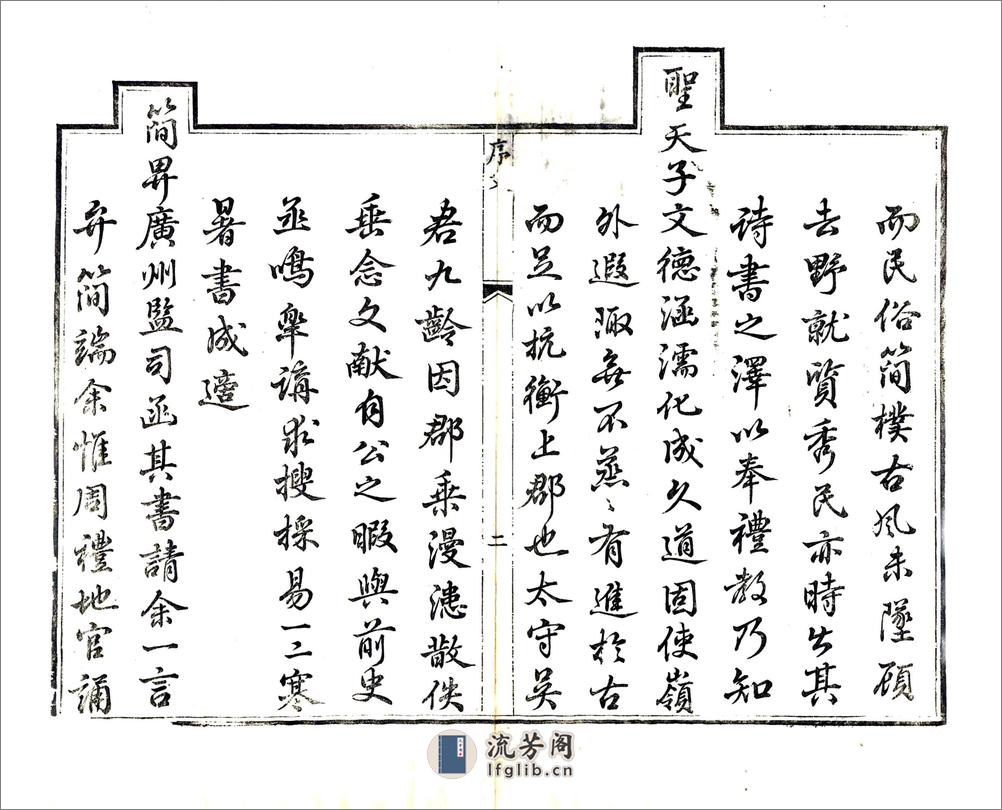 而民俗簡樸古風未墜顧
去野就質秀民亦時出其
詩書之澤以奉禮教乃知
聖天子文德涵濡化成久道固使嶺
外遐陬無不蒸〻有進於古
而足以抗衡上郡也太守吳
序文
二
君九齡因郡乘漫漶散佚
垂念文獻自公之暇與前史
丞鳴皋講求搜採易一二寒
暑書成適
簡畀廣州監司函其書請余一言
弁簡端余惟周禮地官誦
流芳阁
lfglib.cn